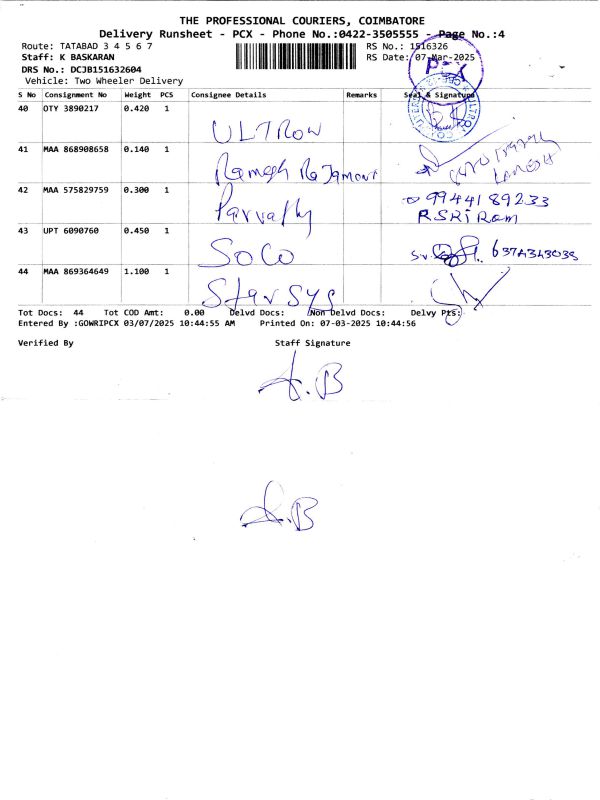 THE PROFESSIONAL COURIERS, COIMBATORE
Delivery Runsheet - PCX - Phone No.:0422-3505555 - Page No.:4
Route: TATABAD 3 4 5 6 7 RS No.: 1516326
Staff: K BASKARAN RS Date: 07-Mar-2025
DRS No.: DCJB151632604
Vehicle: Two Wheeler Delivery
S No Consignment No Weight PCS Consignee Details Remarks Seal & Signature
40 OTY 3890217 0.420 1 ULTROW
41 MAA 868908658 0.140 1 Ramesh
42 MAA 575829759 0.300 1 Parvathy 9944189233
R SRI Ram
43 UPT 6090760 0.450 1 SOCO 6374343039
44 MAA 869364649 1.100 1 Star Sys
Tot Docs: 44 Tot COD Amt: 0.00 Delvd Docs: Non Delvd Docs: Delvy Pts:
Entered By :GOWRIPCX 03/07/2025 10:44:55 AM Printed On: 07-03-2025 10:44:56
Verified By Staff Signature
A.B
A.B